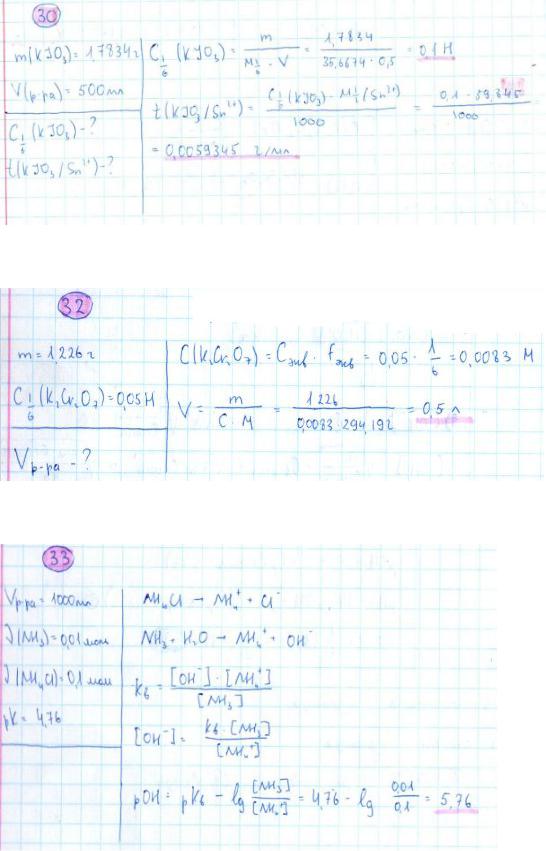 30
m(KJO₃) = 1,7834 г
V(р-ра) = 500 мл
C 1/6 (KJO₃) - ?
t(KJO₃/Sn²⁺) - ?
C 1/6 (KJO₃) = m / (M 1/6 · V) = 1,7834 / (35,6674 · 0,5) = 0,1 Н
t(KJO₃/Sn²⁺) = C 1/6 (KJO₃) · M 1/2 (Sn²⁺) / 1000 = 0,1 · 59,345 / 1000 =
= 0,0059345 г/мл
32
m = 1,226 г
C 1/6 (K₂Cr₂O₇) = 0,05 Н
V р-ра - ?
C(K₂Cr₂O₇) = Cэкв · fэкв = 0,05 · 1/6 = 0,0083 М
V = m / (C · M) = 1,226 / (0,0083 · 294,192) = 0,5 л
33
Vр-ра = 1000 мл
ν(NH₃) = 0,01 моль
ν(NH₄Cl) = 0,1 моль
pK = 4,76
NH₄Cl → NH₄⁺ + Cl⁻
NH₃ + H₂O → NH₄⁺ + OH⁻
Kb = [OH⁻] · [NH₄⁺] / [NH₃]
[OH⁻] = Kb · [NH₃] / [NH₄⁺]
pOH = pKb - lg [NH₃]/[NH₄] = 4,76 - lg 0,01/0,1 = 5,76